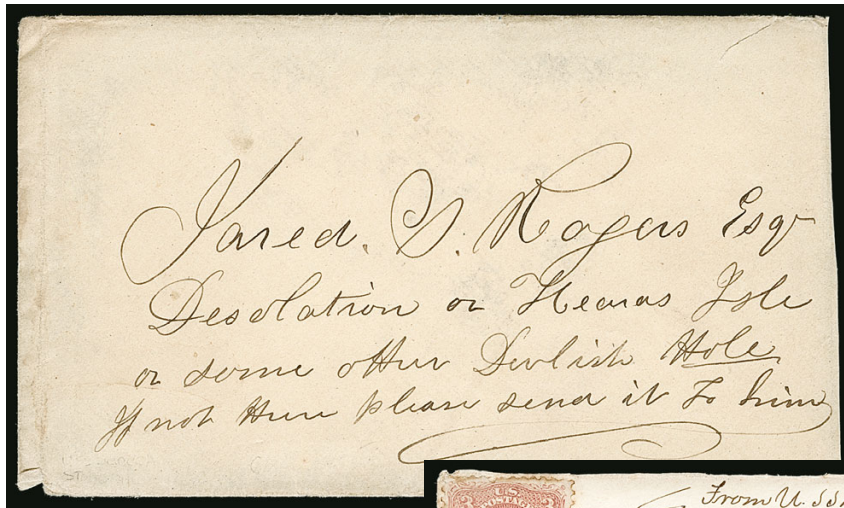 Jared. S. Rogers Esqr
Desolation or Heards Isle
or some other Devlish Hole
If not there please send it to him
From U. SS.
U.S.
POSTAGE
3 3